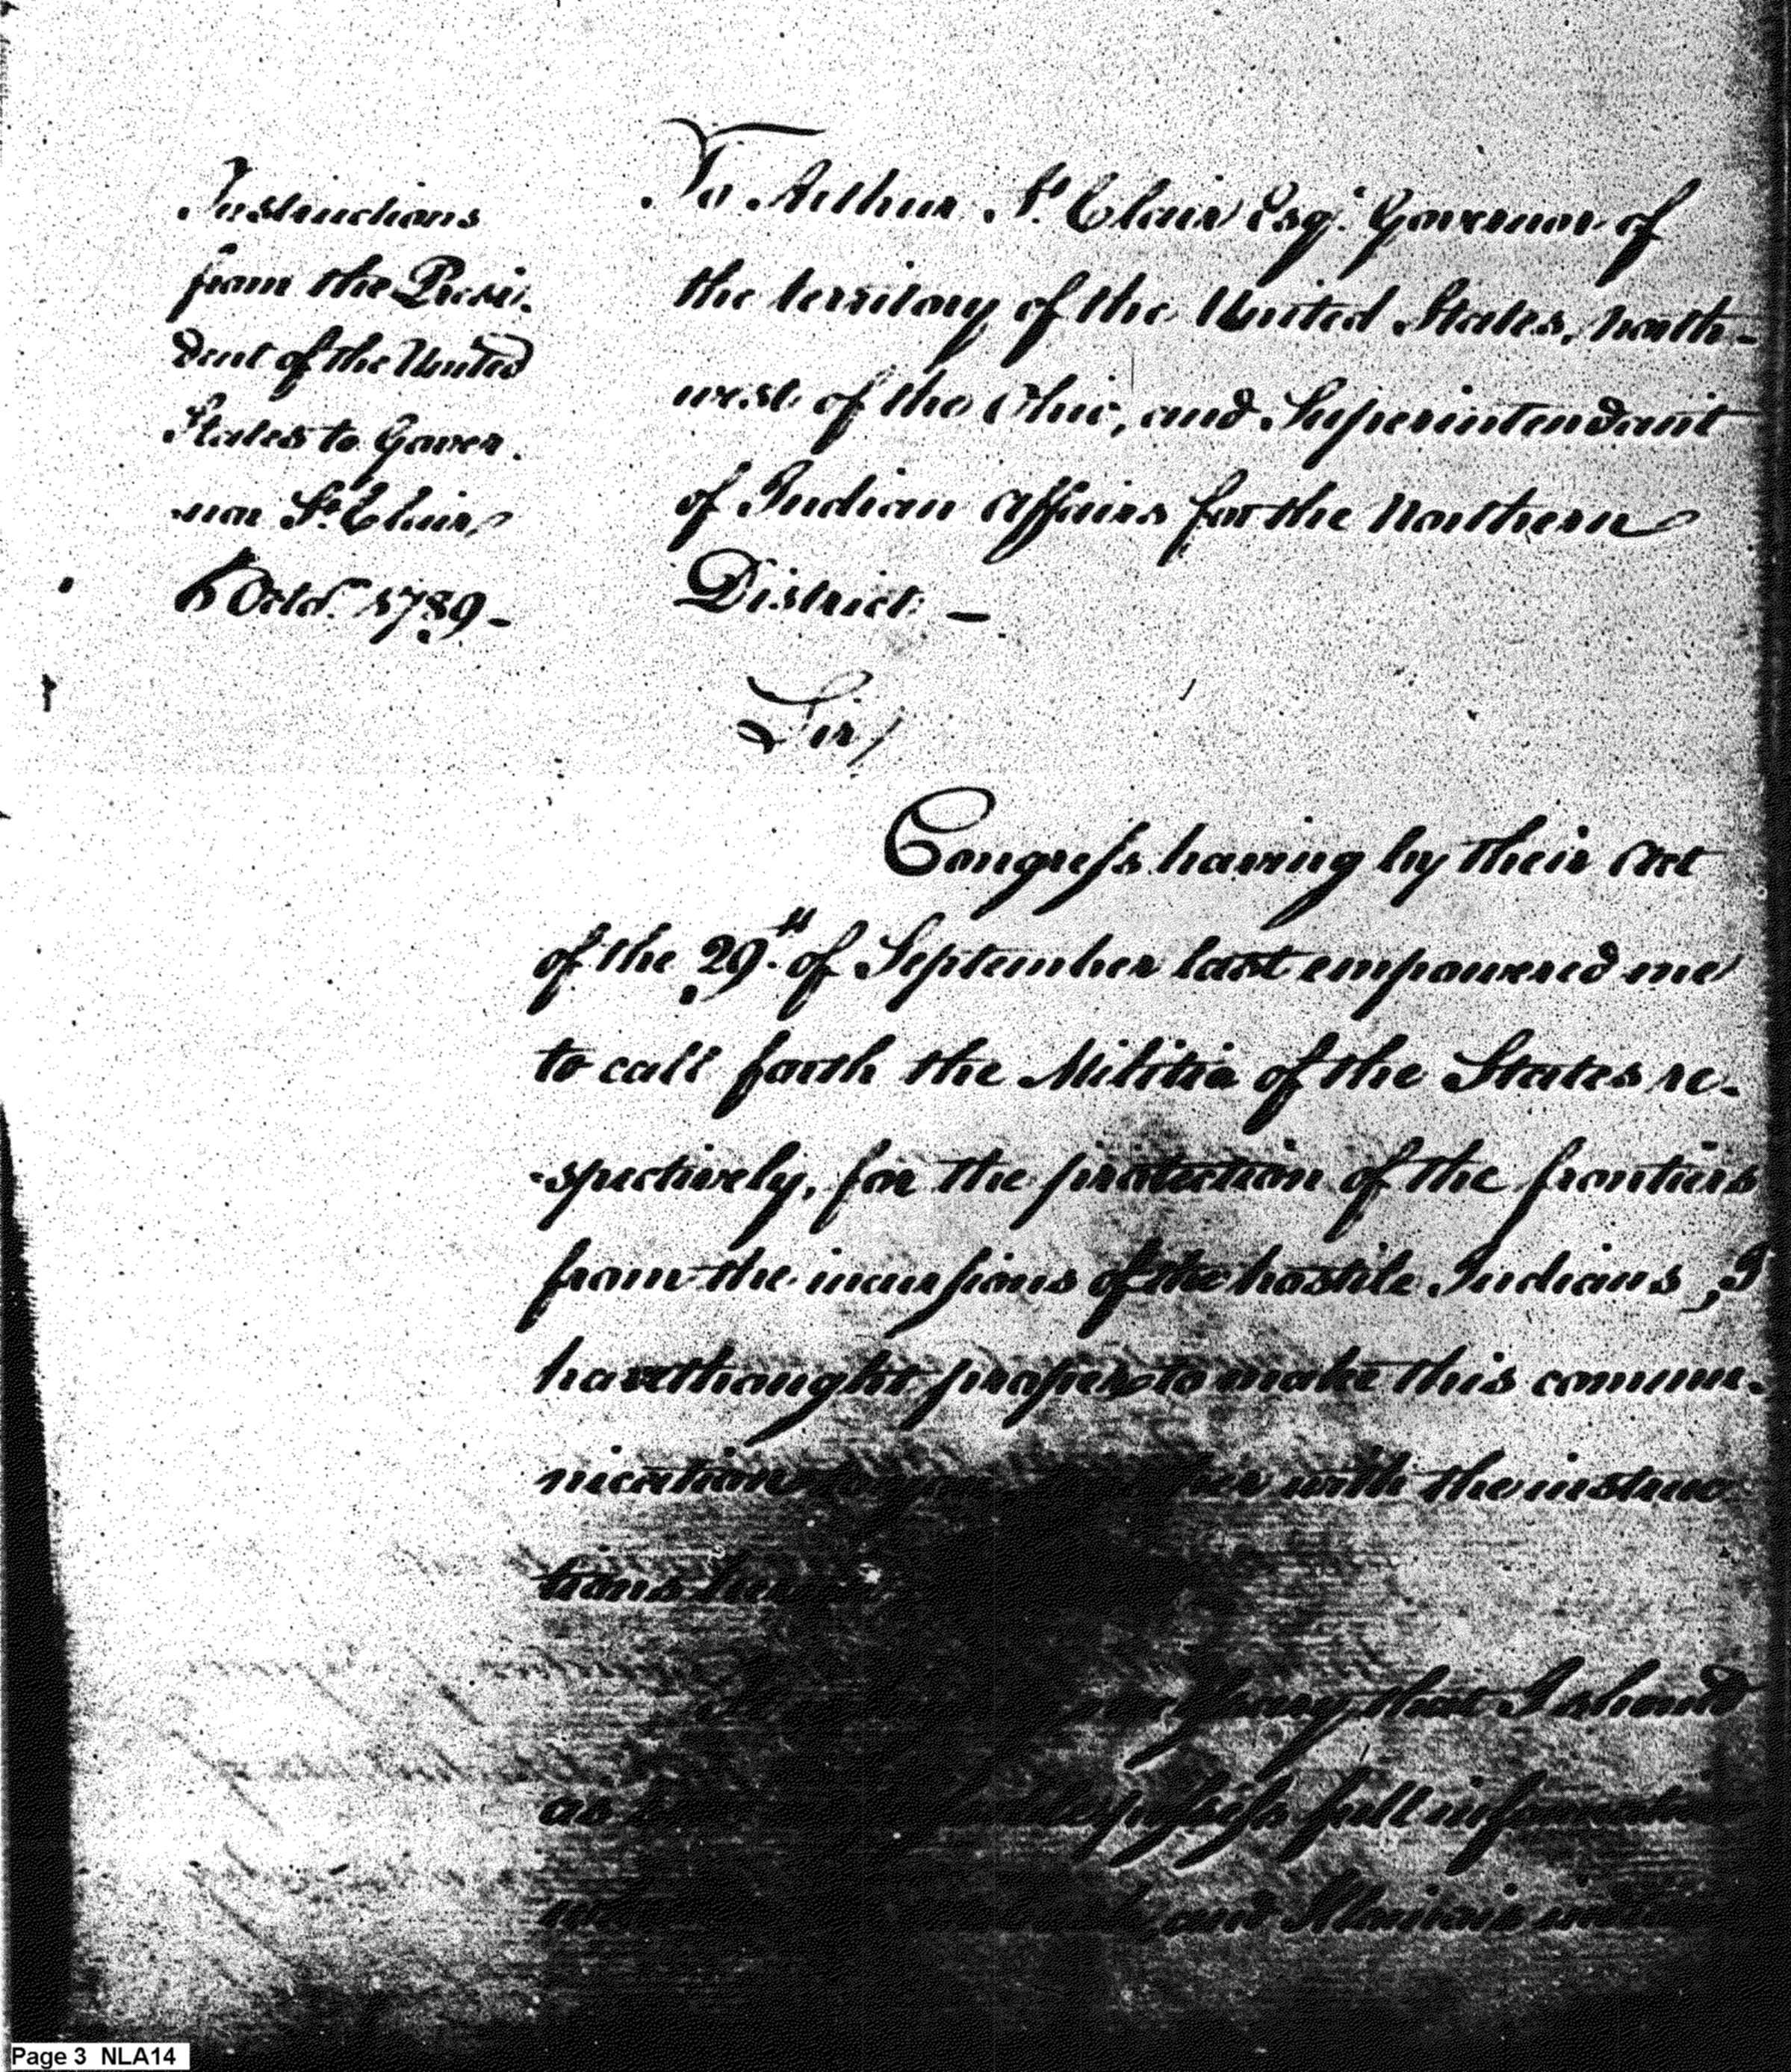 Instructions
from the Presi-
dent of the United
States to Gover-
nor St. Clair,
6 Octo. 1789 -
To Arthur St. Clair Esqr. Governor of
the territory of the United States, north-
west of the Ohio, and Superintendant
of Indian Affairs for the Northern
District: -
Sir/
Congress having by their Act
of the 29th of September last empowered me
to call forth the Militia of the States re-
-spectively, for the protection of the frontiers
from the incursions of the hostile Indians, I
have thought proper to make this commu-
nication with the instruc
tions
necessary that I should
as possess full information
and Illinois
Page 3 NLA14